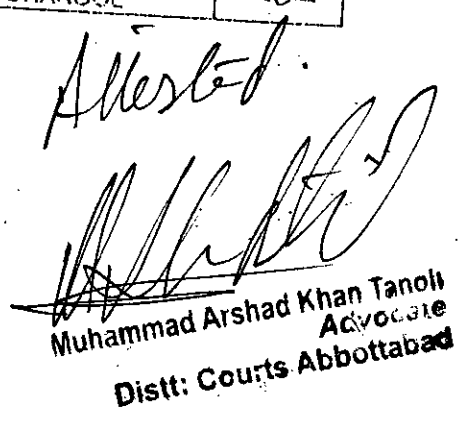 Attested.
Muhammad Arshad Khan Tanoli
Advocate
Distt: Courts Abbottabad